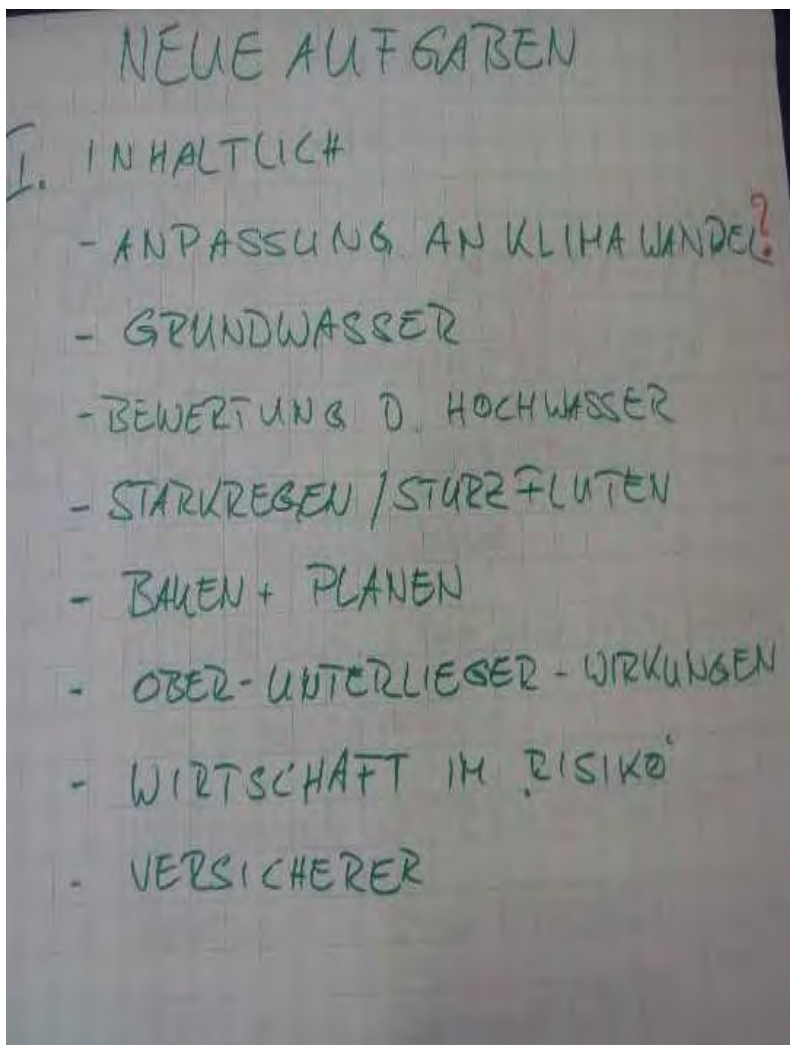 NEUE AUFGABEN
I. INHALTLICH
- ANPASSUNG AN KLIMAWANDEL?
- GRUNDWASSER
- BEWERTUNG D. HOCHWASSER
- STARKREGEN / STURZFLUTEN
- BAUEN + PLANEN
- OBER-UNTERLIEGER-WIRKUNGEN
- WIRTSCHAFT IM ‚RISIKO‘
- VERSICHERER